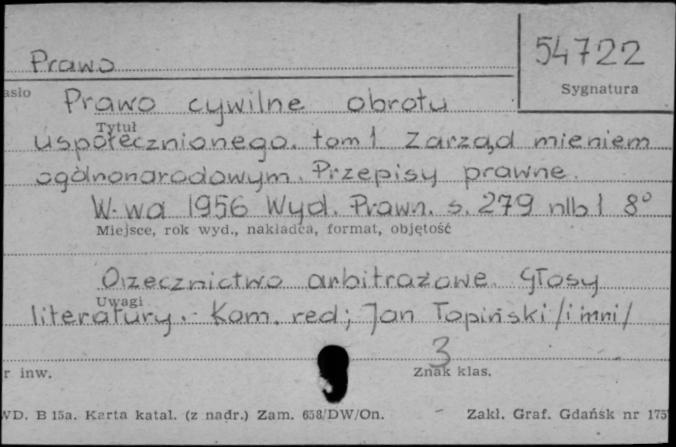 54722
Prawo
Sygnatura
asło
Prawo cywilne obrotu
Tytuł
uspołecznionego. tom 1 Zarząd mieniem
ogólnonarodowym. Przepisy prawne.
W-wa 1956 Wyd. Prawn. s. 279 nlb 1 8°
Miejsce, rok wyd., nakładca, format, objętość
Orzecznictwo arbitrażowe. Głosy
Uwagi
literatury. - Kom. red; Jan Topiński /i inni/
3
r inw.
Znak klas.
WD. B 15a. Karta katal. (z nadr.) Zam. 658/DW/On. - Zakł. Graf. Gdańsk nr 175